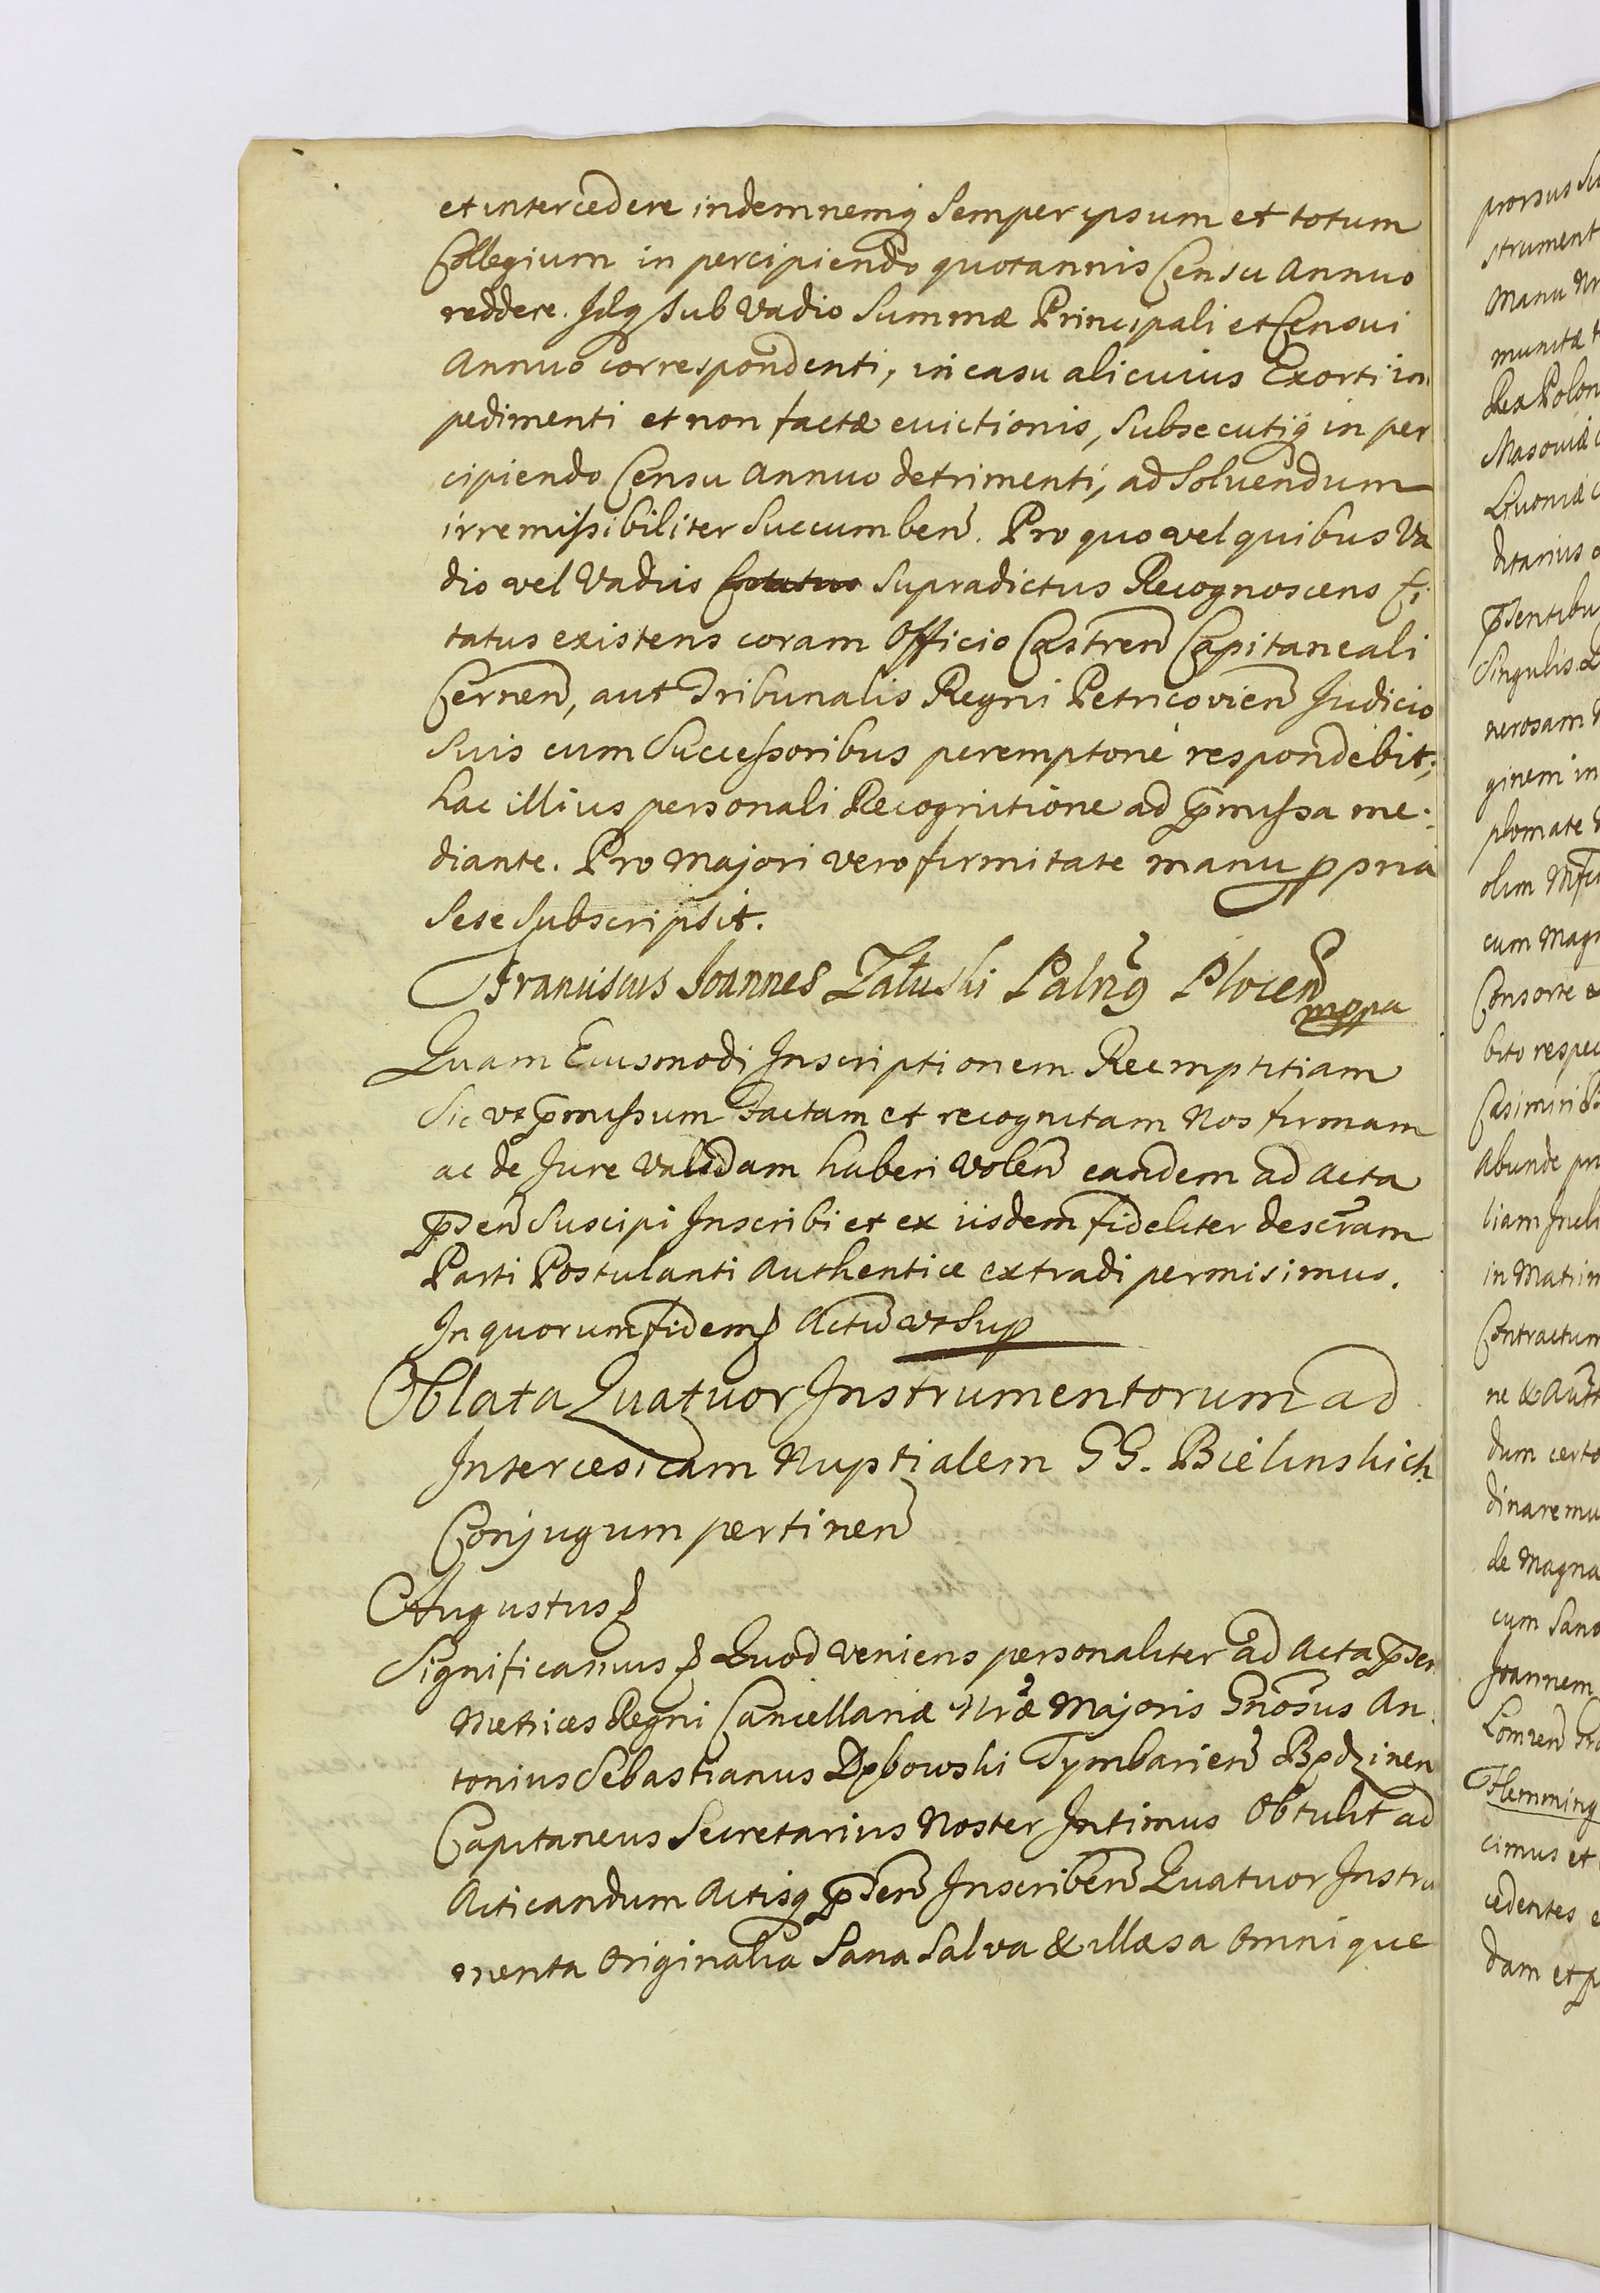 et intercedere indemnemq̃ Semper ipsum et totum
Collegium in percipiendo quotannis Censu Annuo
reddere. Idq̃ sub Vadio Summæ Principali et Censui
Annuo correspondenti, in casu alicuius Exorti im
pedimenti et non factæ evictionis, Subsecutiq̃ in per
cipiendo Censu Annuo detrimenti, ad Solvendum
irremissibiliter Succumben̄. Pro quo vel quibus Va
dio vel Vadiis Supradictus Recognoscens Ci
tatus existens coram Officio Castren̄ Capitaneali
Cernen̄, aut Tribunalis Regni Petricovien̄ Judicio
Suis cum Successoribus peremptorié respondebit;
hac illius personali Recognitione ad p̄missa me:
diante. Pro Majori vero firmitate manu ppria
Sese Subscripsit.
Franciscus Joannes Załuski Palng̃ Plocen̄
mppa
Quam Eiusmodi Inscriptionem Reemptitiam
Sic vt p̄missum Factam et recognitam Nos firmam
ac de Jure Validam haberi Volen̄ eandem ad Acta
p̄sen̄ Suscipi Inscribi et ex iisdem fideliter descr̄am
Parti Postulanti Authentice extradi permisimus.
In quorum fidem ꝭ Actū vt Sup
Oblata Quatuor Instrumentorum ad
Intercesicam Nuptialem GG. Bielinskich
Conjugum pertinen̄
Augustus ꝭ
Significamus ꝭ Quod Veniens personaliter ad Acta p̄sen
Metrices Regni Cancellariæ Nrǣ Majoris Gn̄osus An
tonius Sebastianus Dębowski Tymbarien̄ Będzinen
Capitaneus Secretarius Noster Intimus Obtulit ad
Acticandum Actisq̃ p̄sen̄ Inscriben̄ Quatuor Instru
menta Originalia Sana Salva & illæsa Omnique
prorsus Su
strument
Manu Nr
munitæ
Rex Polon
Masoviæ
Livoniæ
ditarius
p̄sentibu
Singulis
nerosam
ginem in
plomate
olim
cum Magn
Consorte
bito respe
Casimiri
Abunde
liam Incli
in Matrim
Contractum
ne &
dum certo
dinaremu
de Magna
cum Sano
Joannem
Lomzen̄
Flemming
cimus et
cedentes
dam et p